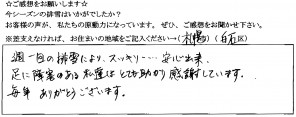 ☆ご感想をお願いします☆
今シーズンの排雪はいかがでしたか？
お客様の声が、私たちの原動力になっています。ぜひ、ご感想をお聞かせ下さい。
※差支えなければ、お住まいの地域をご記入ください→(札幌)(白石区)
週一回の排雪により、スッキリ・・・安心出来、
足に障害のある私達はとても助かり感謝しています。
毎年ありがとうございます。